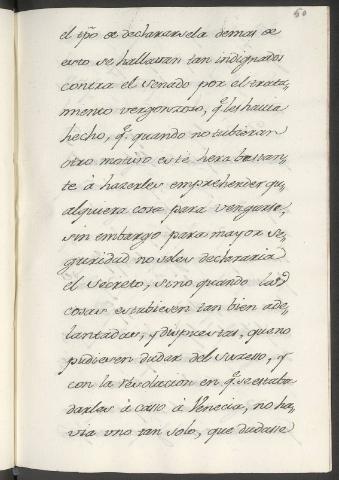 50
el tpõ de declararsela demas de
esto se hallavan tan indignados
contra el Senado por el trata,,
miento vergonzoso, q̃ les havia
hecho, q̃ quando no tubieran
otro motivo este hera bastan,,
te à hazerles emprehender qu,,
alquiera cosa para vengarse,
sin embargo para mayor se,,
guridad no seles declararia
el secreto, sino quando las
cosas estubiesen tan bien ade,,
lantadas, y dispuestas, que no
pudiesen dudar del suzesso, y
con la resolucion en q̃ se estaba
darlas à casso à Venecia, no ha,,
via uno tan solo, que dudasse